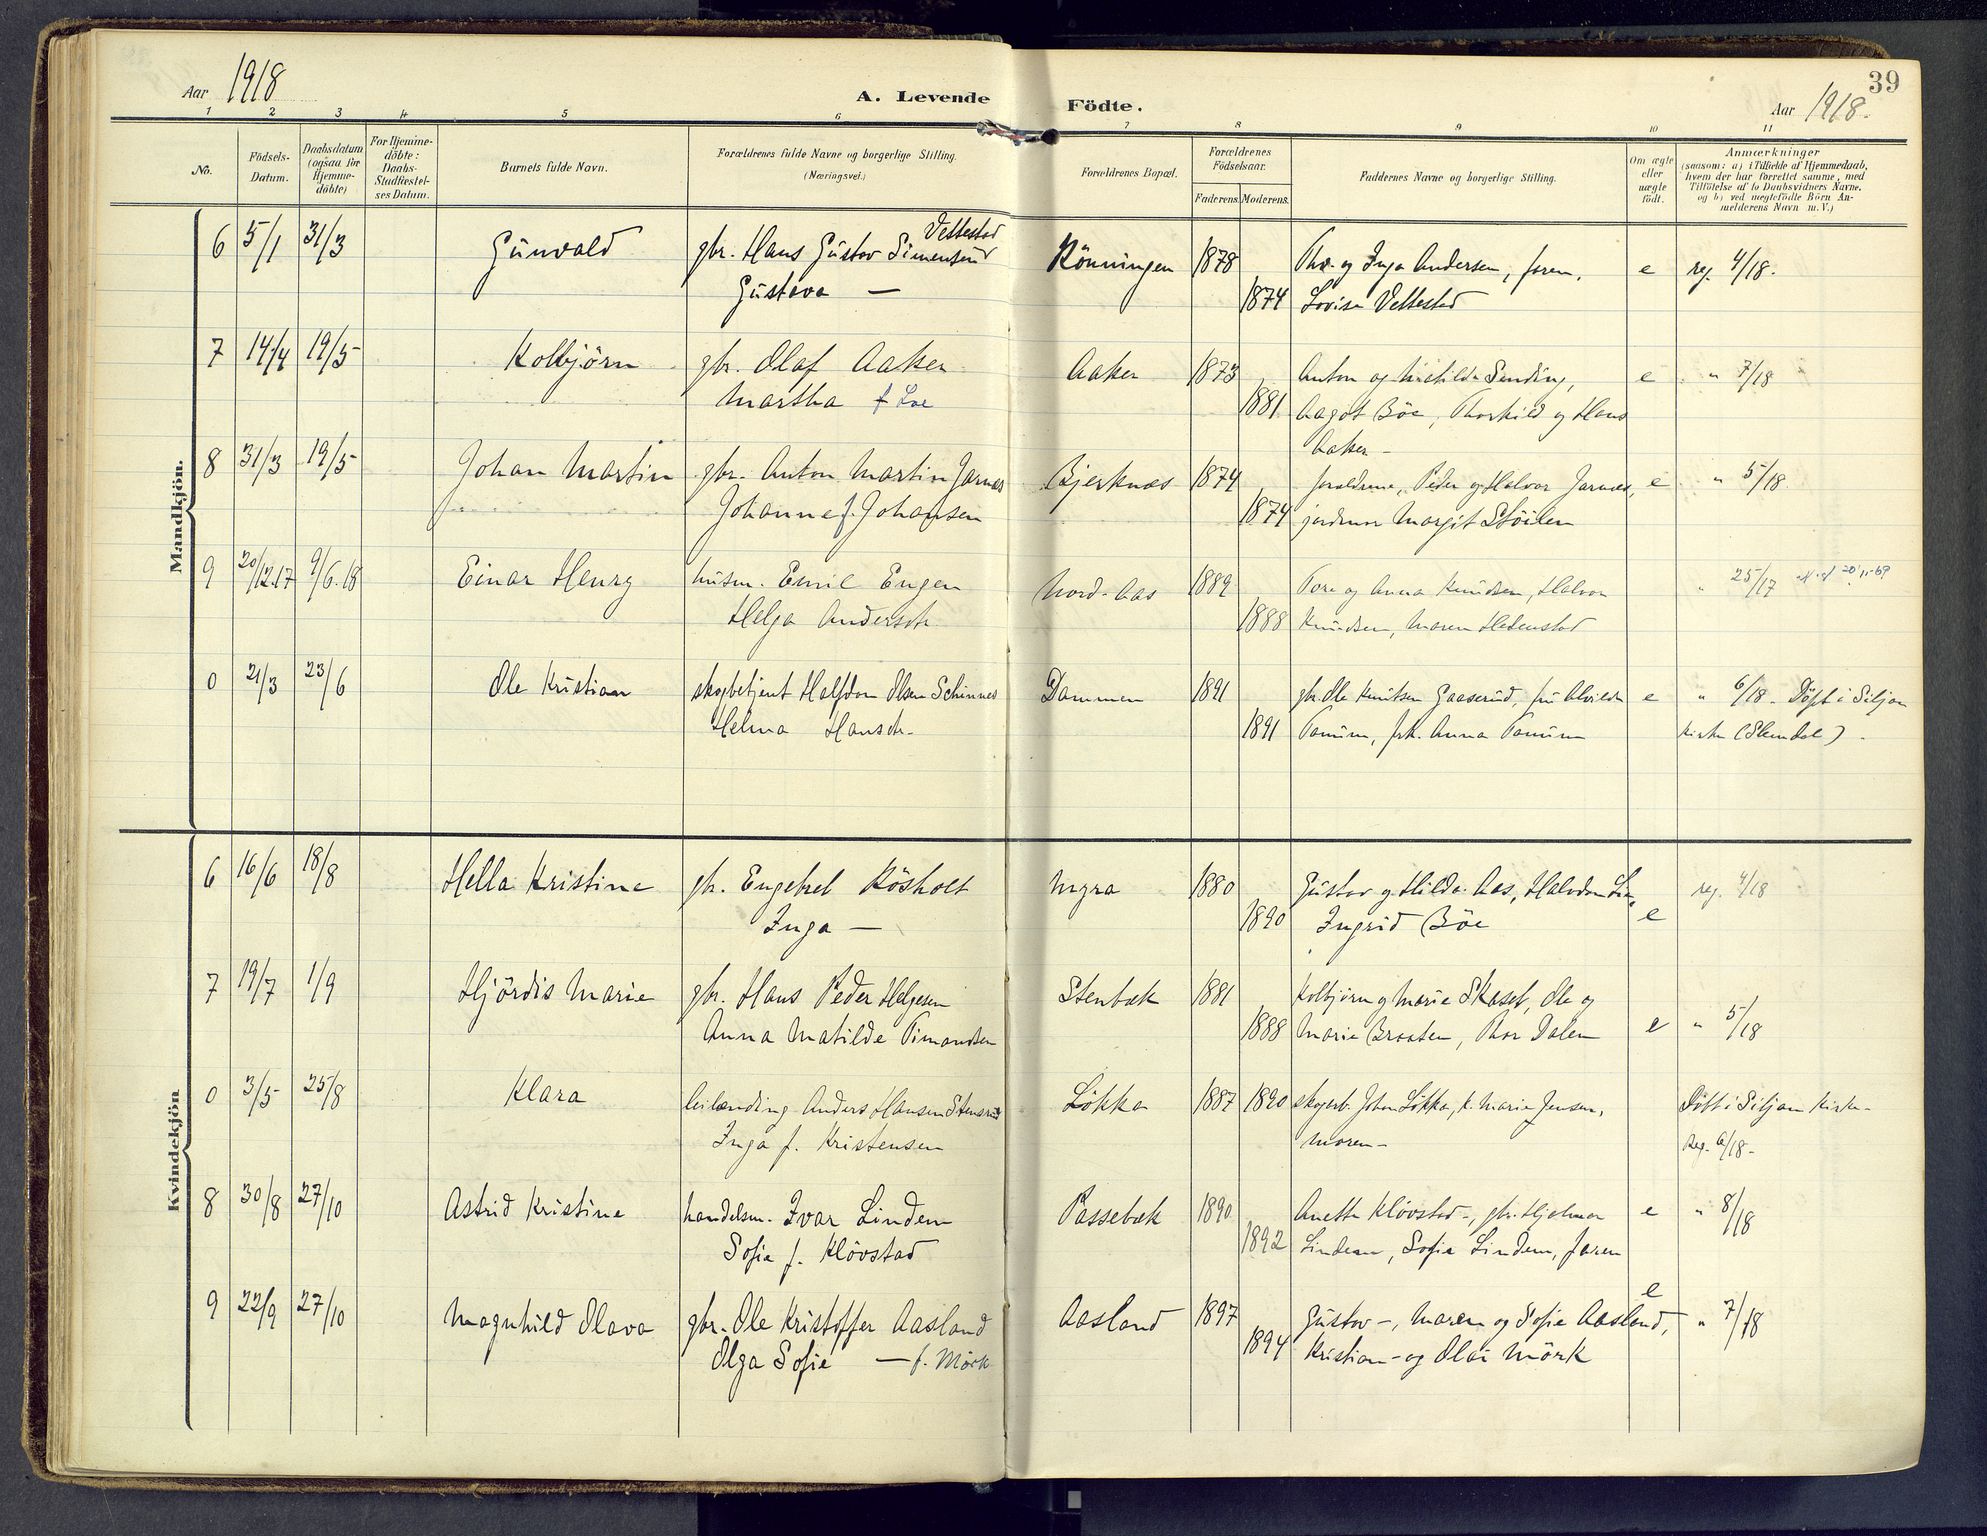 Aar 1918
A. Levende Födte.
39
Aar 1918.
1 2 3 4 5 6 7 8 9 10 11
No.
Födsels-Datum.
Daabsdatum (ogsaa for Hjemmedöbte)
For Hjemmedöbte: Daabs-Stadfæstelses Datum.
Barnets fulde Navn.
Forældrenes fulde Navne og borgerlige Stilling. (Næringsvei.)
Forældrenes Bopæl.
Forældrenes Födselsaar.
Faderens. Moderens.
Faddernes Navne og borgerlige Stilling.
Om ægte eller uægte födt.
Anmærkninger
(saasom: a) i Tilfælde af Hjemmedaab,
hvem der har forrettet samme, med
Tilföielse af to Daabsvidners Navne,
og b) ved uægtefödte Börn An-
melderens Navn m. V.)
Mandkjön.
6 5/1 31/3 Gunvald gbr. Hans Gustav Simensen Vettestad Rönningen 1878 Thv. og Inga Andersen, faren, e reg. 4/18.
Gustava — 1874 Lovise Vettestad
7 14/4 19/5 Kolbjörn gbr. Olaf Aaker Aaker 1873 Anton og Mathilde Sending, e " 7/18
Martha f Loe 1881 Aagot Böe, Thorkild og Hans
Aaker -
8 31/3 19/5 Johan Martin gbr. Anton Martin Jarnes Bjerknæs 1874 forældrene, Peder og Halvor Jarnes, e " 5/18.
Johanne f. Johansen 1874 jordmor Margit Stöilen
9 20/12.17 9/6.18 Einar Henry husm. Emil Engen Nord-Aas 1889 Tore og Anna Knudsen, Halvor " 25/17
Helga Andersdtr. 1888 Knudsen, Maren Hedenstad
0 21/3 23/6 Ole Kristian skogbetjent Halfdan Olsen Schinnes Dammen 1891 gbr. Ole Knutsen Gaaserud, fru Alvilde e " 6/18. Döpt i Siljan
Helma Hansdtr. 1891 Tanum, frk. Anna Tanum kirke (Slemdal).
Kvindekjön
6 16/6 18/8 Hella Kristine gbr. Engebret Kösholt Myra 1880 Gustav og Hilda Aas, Halvdan reg. 4/18
Inga — 1890 Ingrid Böe e
7 19/7 1/9 Hjördis Marie gbr. Hans Peder Helgesen Stenbæk 1881 Kolbjörn og Marie Skaset, Ole og
Anna Matilde Timandsen 1888 Marie Braaten, Thor Dalen e " 5/18
0 3/5 25/8 Klara leilænding Anders Hansen Stensrud Lökka 1887 1890 skogarb. Johan Lökka, k. Marie Jensen, Döbt i Siljan Kirke.
Inga f. Kristensen moren - Reg. 6/18.
8 30/8 27/10 Astrid Kristine handelsm. Ivar Lindem Passebæk 1890 Anette Klövstad, gbr. Hjalmar e " 8/18
Sofie f. Klövstad 1892 Lindem, Sofie Lindem, faren
9 22/9 27/10 Magnhild Olava gbr. Ole Kristoffer Aasland Aasland 1897 Gustav -, Maren og Sofie Aasland, e " 7/18
Olga Sofie — f. Mörk 1894 Kristian - og Olai Mörk